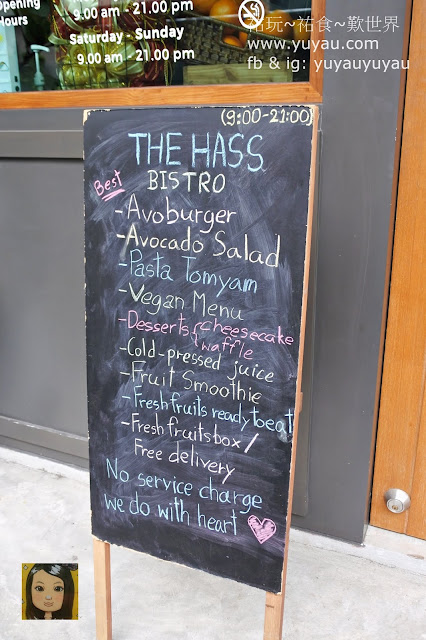 Opening
Hours
9.00 am - 21.00 pm
Saturday - Sunday
9.00 am - 21.00 pm
祐玩~祐食~歎世界
www.yuyau.com
fb & ig: yuyauyuyau
(9:00-21:00)
THE HASS
Best
BISTRO
-Avoburger
-Avocado Salad
-Pasta Tomyam
-Vegan Menu
-Desserts { Cheesecake
waffle
-Cold-pressed juice
-Fruit Smoothie
-Fresh fruits ready to eat
-Fresh fruits box/
Free delivery
No service charge
we do with heart